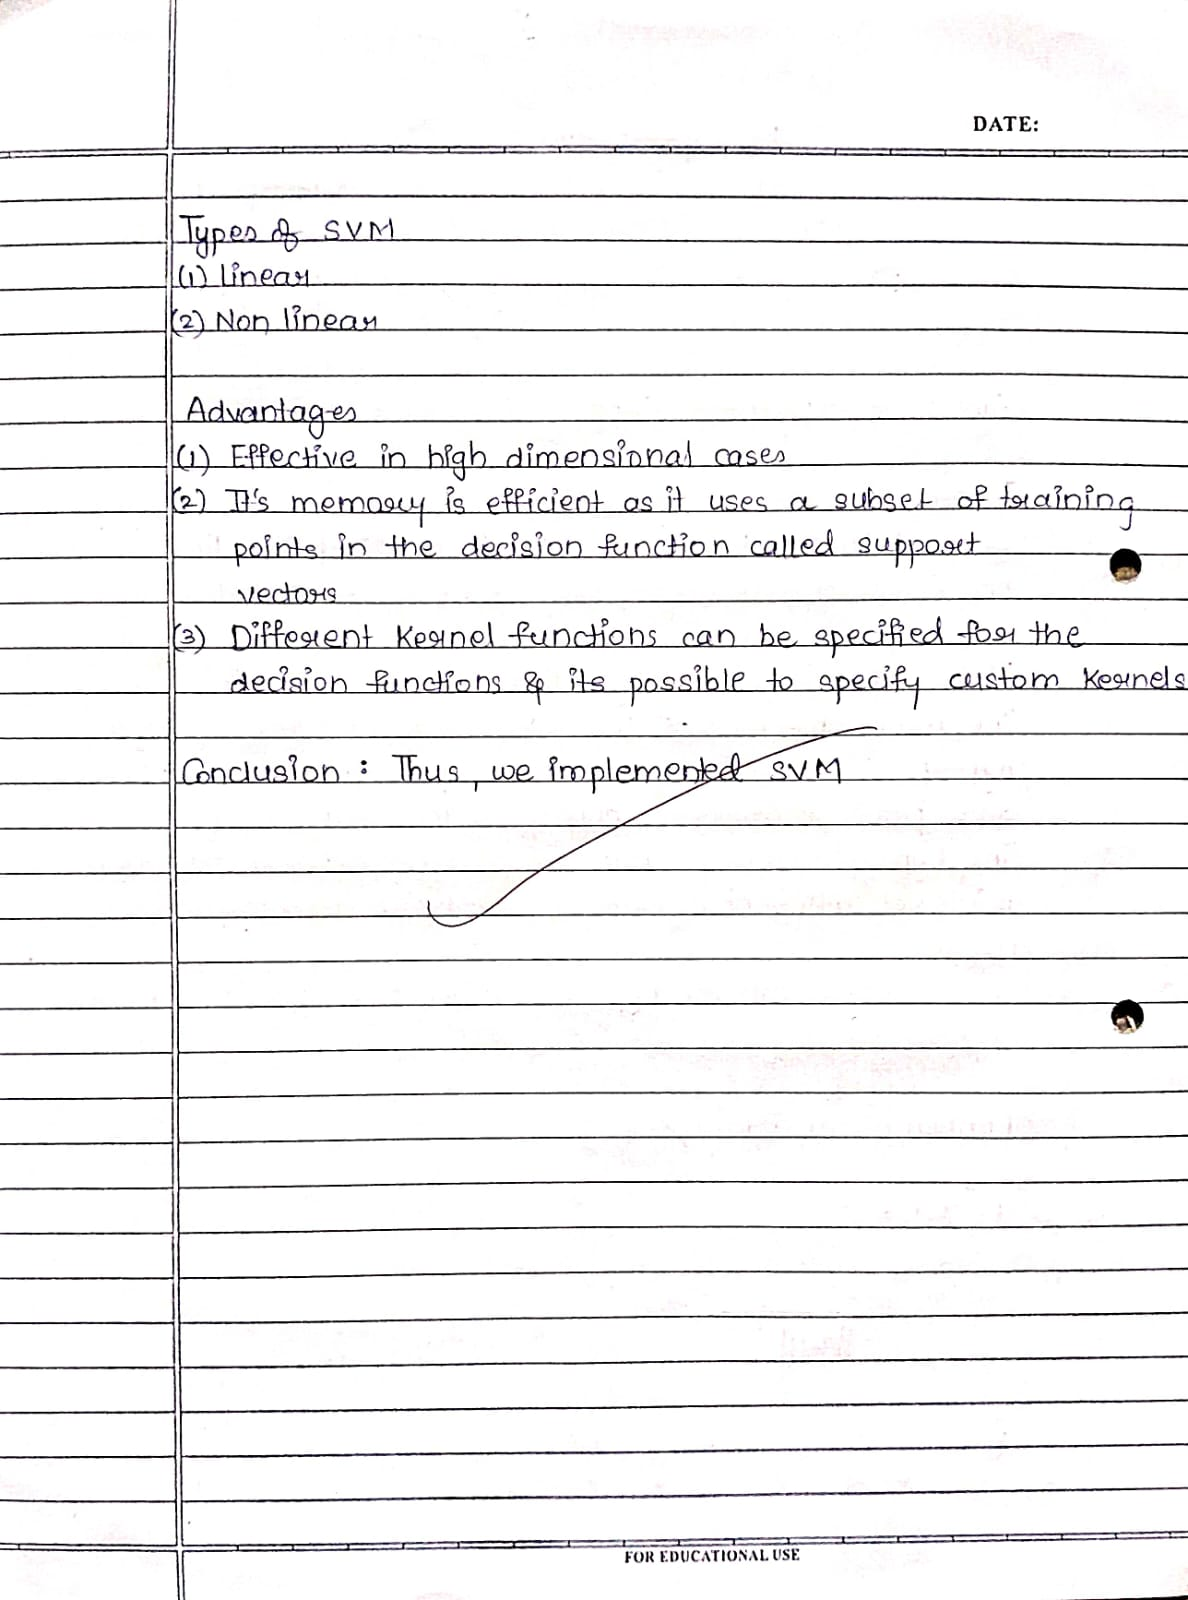 DATE:
Types of SVM
(1) linear
(2) Non linear
Advantages
(1) Effective in high dimensional cases
(2) It's memory is efficient as it uses a subset of training
points in the decision function called support
vectors
(3) Different Kernel functions can be specified for the
decision functions & its possible to specify custom Kernels
Conclusion : Thus, we implemented SVM
FOR EDUCATIONAL USE